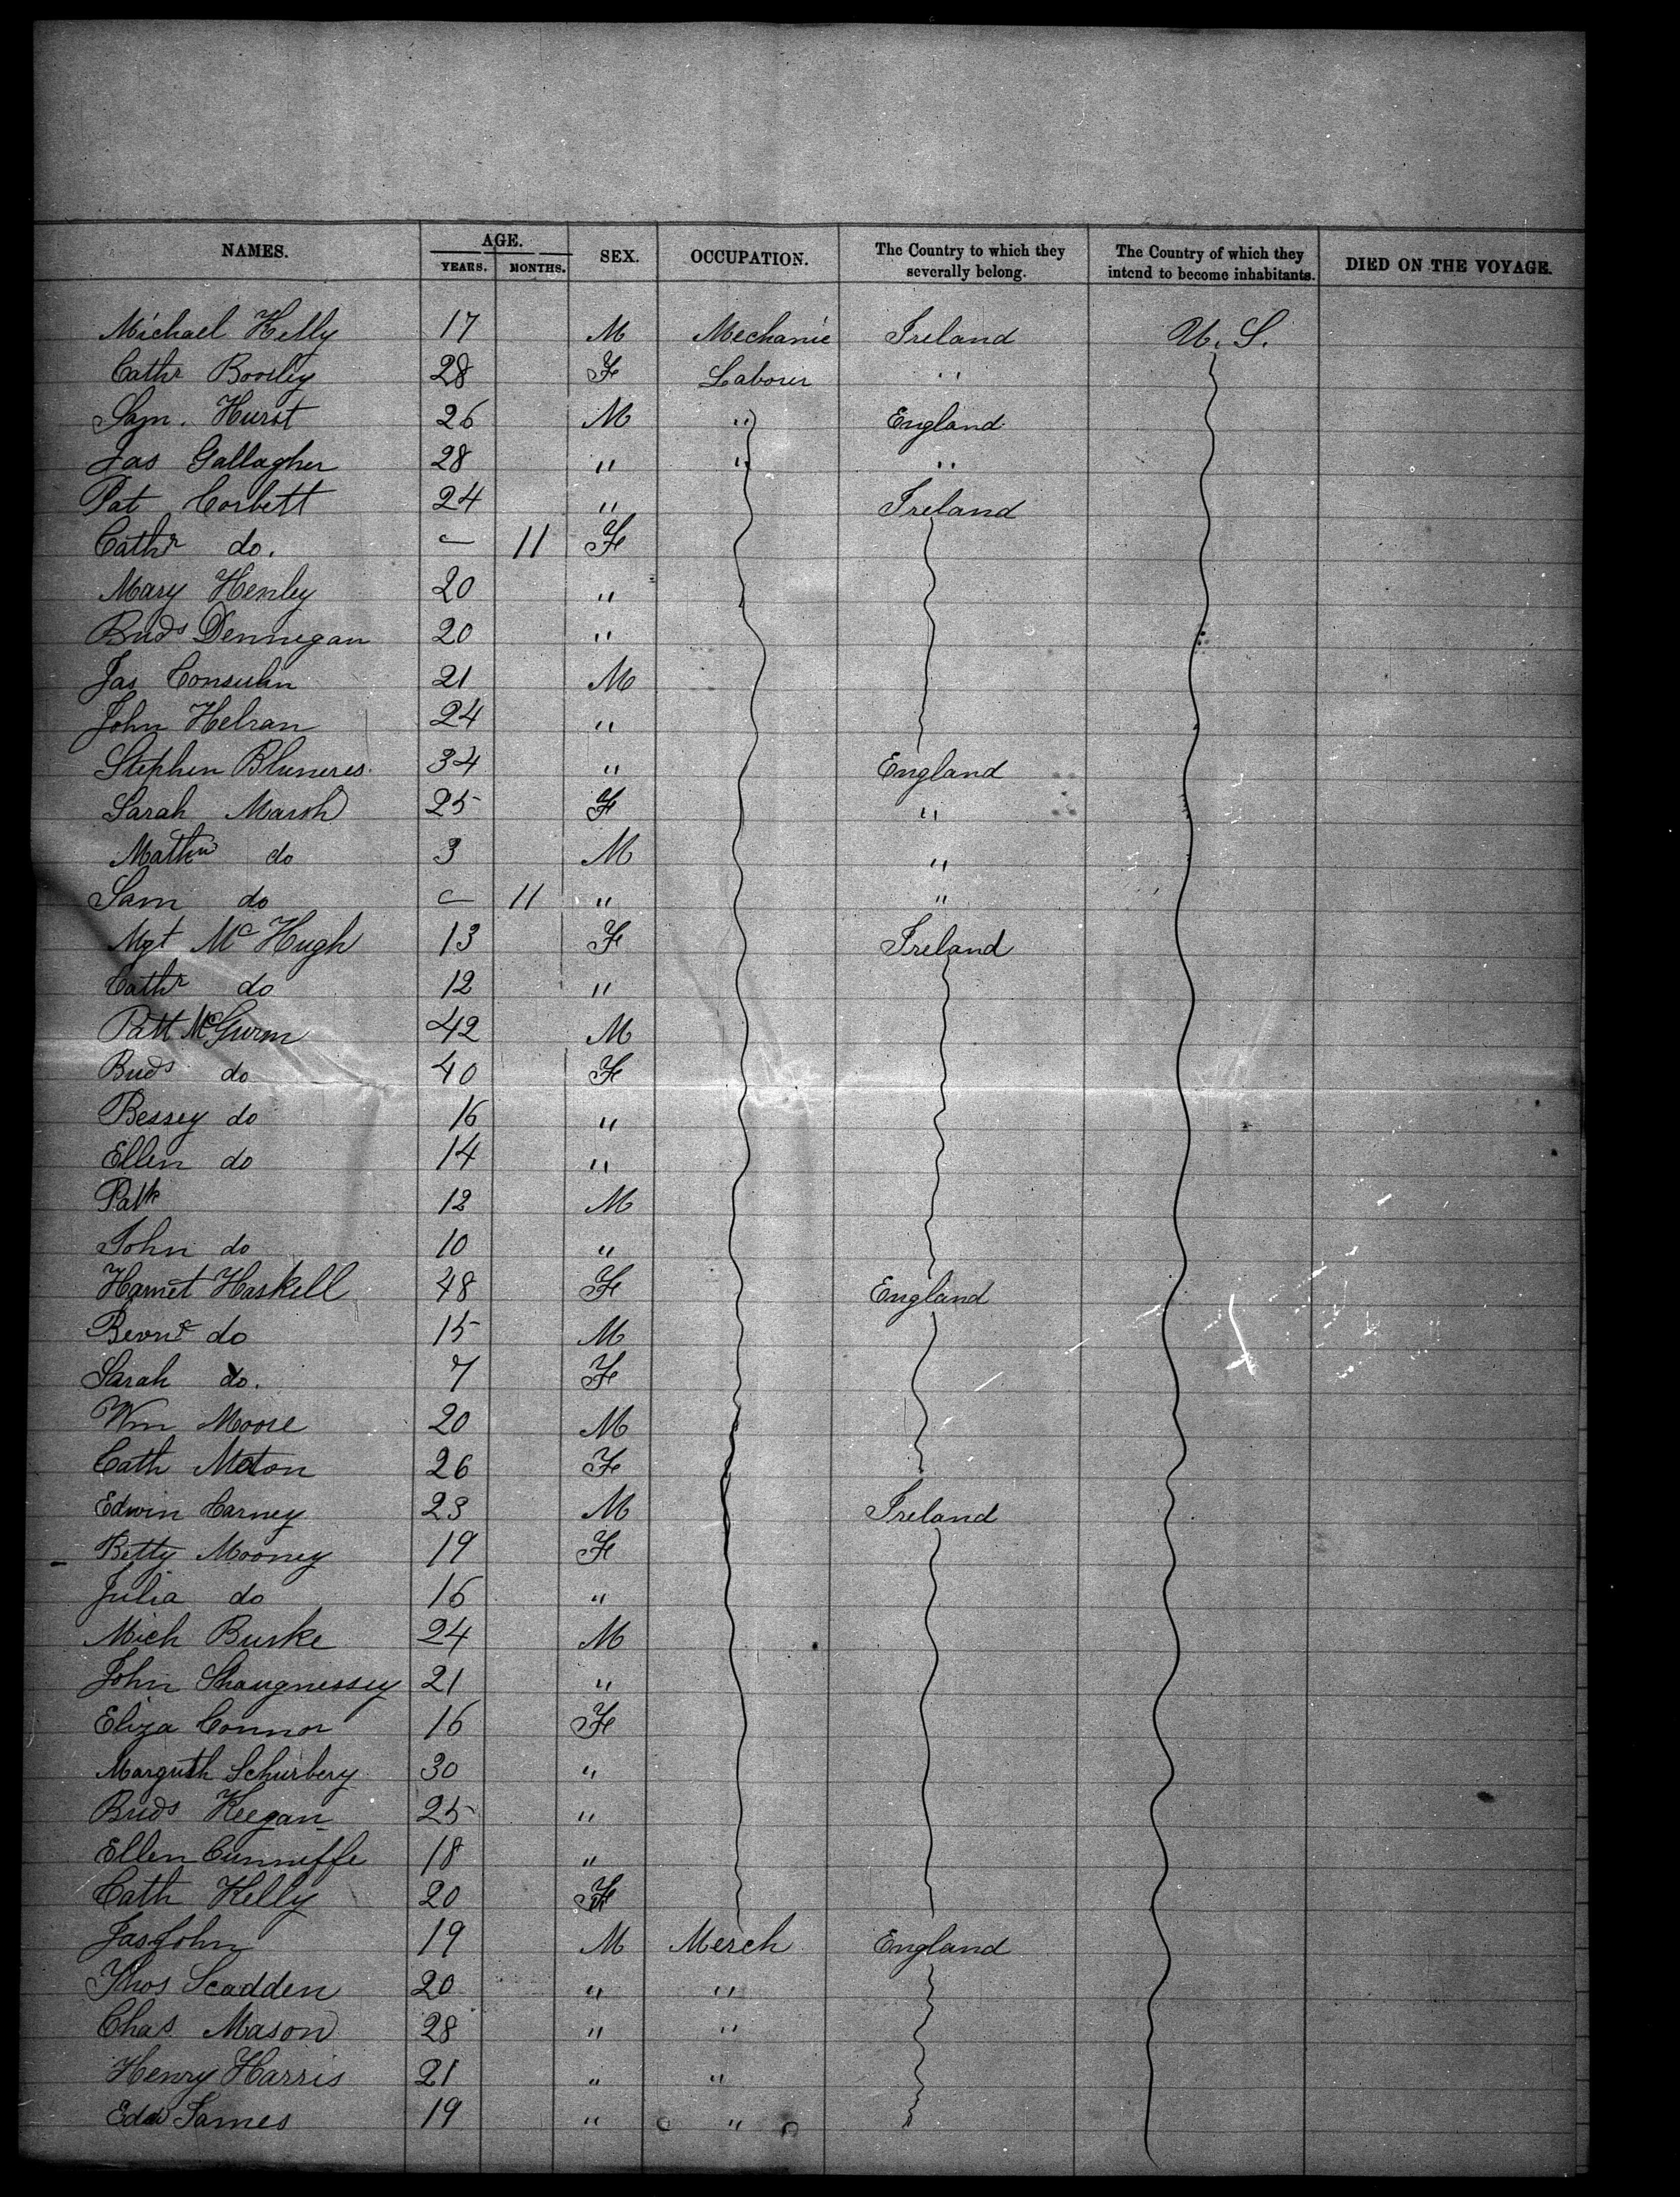 NAMES. AGE. SEX. OCCUPATION. The Country to which they severally belong. The Country of which they intend to become inhabitants. DIED ON THE VOYAGE.
YEARS. MONTHS.
Michael Kelly 17 M Mechanic Ireland U.S.
Cathr 28 F Laborer "
Sam. Hurst 26 M " England
Jas Gallagher 28 " " "
Pat Corbett 24 " Ireland
Cathr do. — 11 F
Mary Henley 20 "
Brids Dennegan 20 "
Jas 21 M
John 24 "
Stephen 34 " England
Sarah Marsh 25 F "
Mathw do 3 M "
Sam do — 11 " "
Mgt McHugh 13 F Ireland
Cathr do 12 "
Patt 42 M
Brids do 40 F
Bessey do 16 "
Ellen do 14 "
Patk 12 M
John do 10 "
Harriet Haskell 48 F England
do 15 M
Sarah do. 7 F
Wm Moore 20 M
Cath 26 F
Edwin Carney 23 M Ireland
Betty Mooney 19 F
Julia do 16 "
Mich Burke 24 M
John Shaugnessey 21 "
Eliza Connor 16 F
30 "
Brids Keegan 25 "
Ellen Cunneffe 18 "
Cath Kelly 20 F
Jas John 19 M Merch England
Thos Scadden 20 " "
Chas Mason 28 " "
Henry Harris 21 " "
Edwd James 19 " "